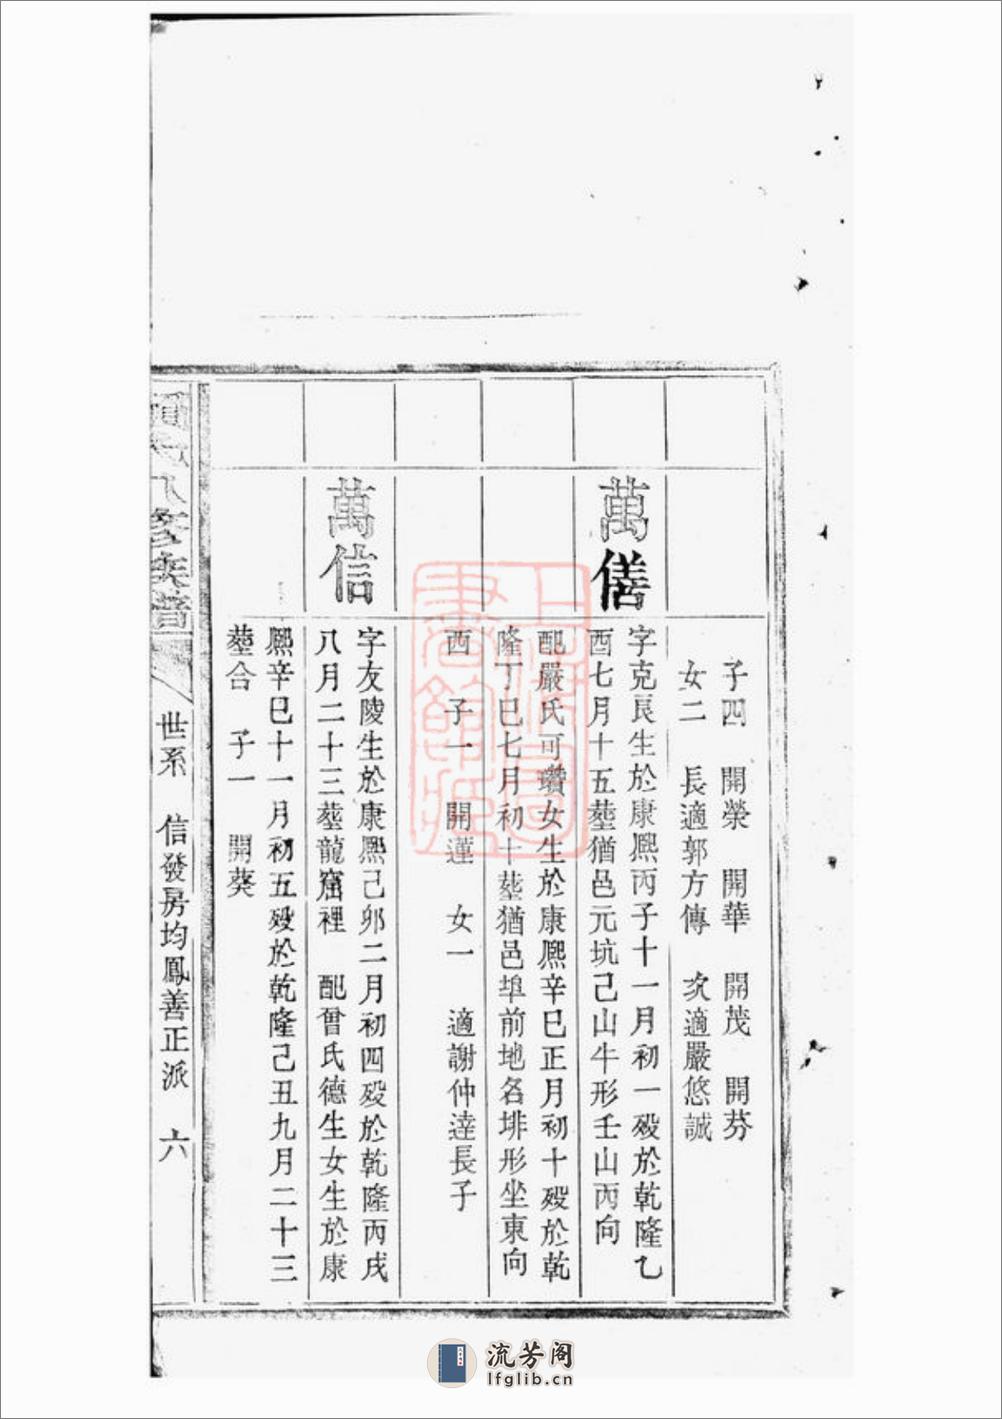 子四　開榮　開華　開茂　開芬
女二　長適郭方傳　次適嚴悠誠
萬僐
字克艮生於康熙丙子十一月初一殁於乾隆乙
酉七月十五塟猶邑元坑己山牛形壬山丙向
配嚴氏可瓚女生於康熙辛巳正月初十殁於乾
隆丁巳七月初十塟猶邑埠前地名排形坐東向
西　子一　開運　女一　適謝仲達長子
萬信
字友陵生於康熙己卯二月初四殁於乾隆丙戌
八月二十三塟龍窟裡　配曾氏德生女生於康
熙辛巳十一月初五殁於乾隆己丑九月二十三
塟合　子一　開葵
修族譜
世系　信發房均鳳善正派　六
上海圖書館藏
流芳阁
lfglib.cn